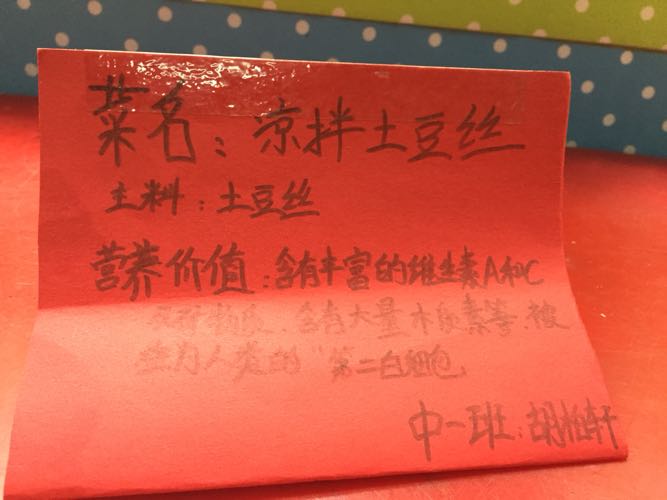 菜名：凉拌土豆丝
主料：土豆丝
营养价值：含有丰富的维生素A和C
及矿物质、含有大量木质素等、被
为人类的“第二白细胞
中一班：胡柏轩